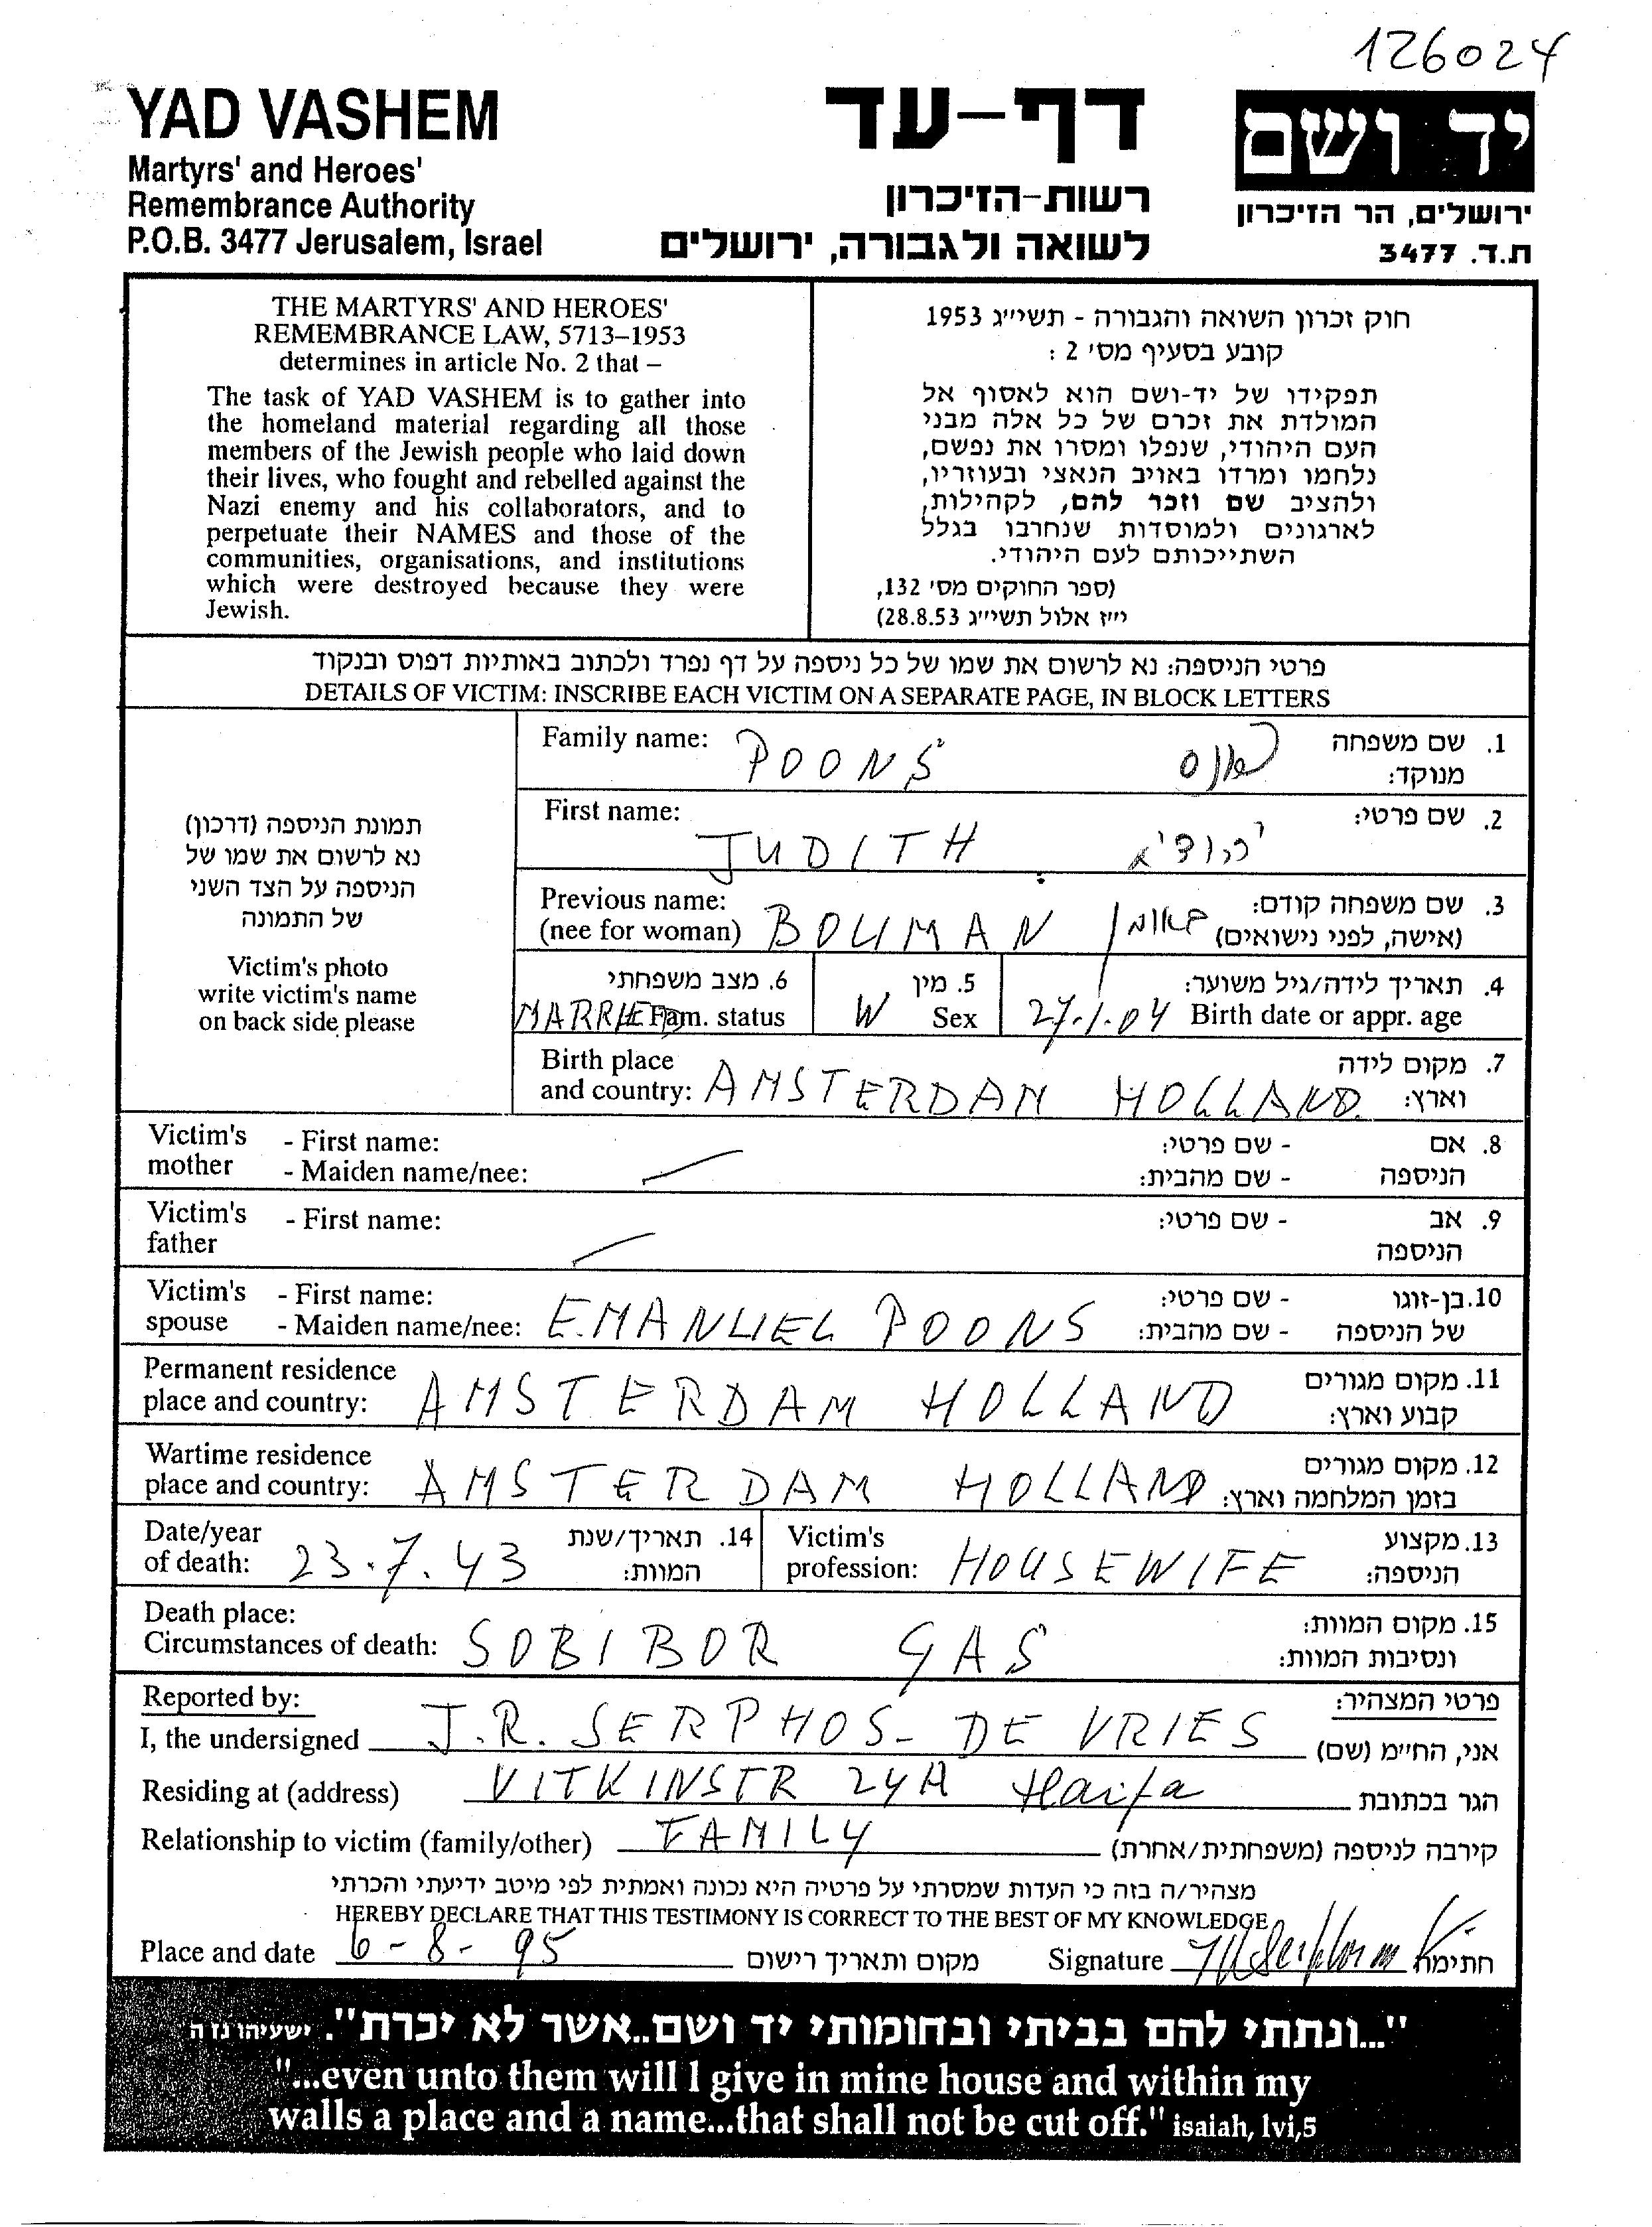 126024
YAD VASHEM
Martyrs' and Heroes'
Remembrance Authority
P.O.B. 3477 Jerusalem, Israel
דף-עד
רשות-הזיכרון
לשואה ולגבורה, ירושלים
יד ושם
ירושלים, הר הזיכרון
ת.ד. 3477
THE MARTYRS' AND HEROES'
REMEMBRANCE LAW, 5713–1953
determines in article No. 2 that –
The task of YAD VASHEM is to gather into
the homeland material regarding all those
members of the Jewish people who laid down
their lives, who fought and rebelled against the
Nazi enemy and his collaborators, and to
perpetuate their NAMES and those of the
communities, organisations, and institutions
which were destroyed because they were
Jewish.
חוק זכרון השואה והגבורה - תשי״ג 1953
קובע בסעיף מס׳ 2 :
תפקידו של יד-ושם הוא לאסוף אל
המולדת את זכרם של כל אלה מבני
העם היהודי, שנפלו ומסרו את נפשם,
נלחמו ומרדו באויב הנאצי ובעוזריו,
ולהציב שם וזכר להם, לקהילות,
לארגונים ולמוסדות שנחרבו בגלל
השתייכותם לעם היהודי.
(ספר החוקים מס׳ 132,
י״ז אלול תשי״ג 28.8.53)
פרטי הניספה: נא לרשום את שמו של כל ניספה על דף נפרד ולכתוב באותיות דפוס ובנקוד
DETAILS OF VICTIM: INSCRIBE EACH VICTIM ON A SEPARATE PAGE, IN BLOCK LETTERS
תמונת הניספה (דרכון)
נא לרשום את שמו של
הניספה על הצד השני
של התמונה
Victim's photo
write victim's name
on back side please
Family name: POONS פאונס 1. שם משפחה
מנוקד:
First name: JUDITH יהודית 2. שם פרטי:
Previous name: 3. שם משפחה קודם:
(nee for woman) BOUMAN באומן (אישה, לפני נישואים)
6. מצב משפחתי 5. מין 4. תאריך לידה/גיל משוער:
MARRIED Fam. status W Sex 27.1.04 Birth date or appr. age
Birth place 7. מקום לידה
and country: AMSTERDAM HOLLAND וארץ:
Victim's - First name: - שם פרטי: 8. אם
mother - Maiden name/nee: - שם מהבית: הניספה
Victim's - First name: - שם פרטי: 9. אב
father הניספה
Victim's - First name: - שם פרטי: 10. בן-זוגו
spouse - Maiden name/nee: EMANUEL POONS - שם מהבית: של הניספה
Permanent residence 11. מקום מגורים
place and country: AMSTERDAM HOLLAND קבוע וארץ:
Wartime residence 12. מקום מגורים
place and country: AMSTERDAM HOLLAND בזמן המלחמה וארץ:
Date/year 14. תאריך/שנת Victim's 13. מקצוע
of death: 23.7.43 המוות: profession: HOUSEWIFE הניספה:
Death place: 15. מקום המוות:
Circumstances of death: SOBIBOR GAS ונסיבות המוות:
Reported by: פרטי המצהיר:
I, the undersigned J.R. SERPHOS-DE VRIES אני, החיימ (שם)
Residing at (address) VITKINSTR 24A Haifa הגר בכתובת
Relationship to victim (family/other) FAMILY קירבה לניספה (משפחתית/אחרת)
מצהיר/ה בזה כי העדות שמסרתי על פרטיה היא נכונה ואמתית לפי מיטב ידיעתי והכרתי
HEREBY DECLARE THAT THIS TESTIMONY IS CORRECT TO THE BEST OF MY KNOWLEDGE
Place and date 6-8-95 מקום ותאריך רישום Signature חתימה
"...ונתתי להם בביתי ובחומותי יד ושם..אשר לא יכרת". ישעיהו נז ה
"...even unto them will I give in mine house and within my
walls a place and a name...that shall not be cut off." isaiah, lvi,5